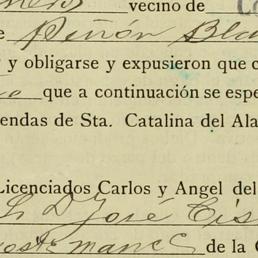 vecino de
Piñón Bla
y obligarse y expusieron que c
que a continuación se espe
endas de Sta. Catalina del Ala
Licenciados Carlos y Angel del
Sr. D. José Cis
de la C